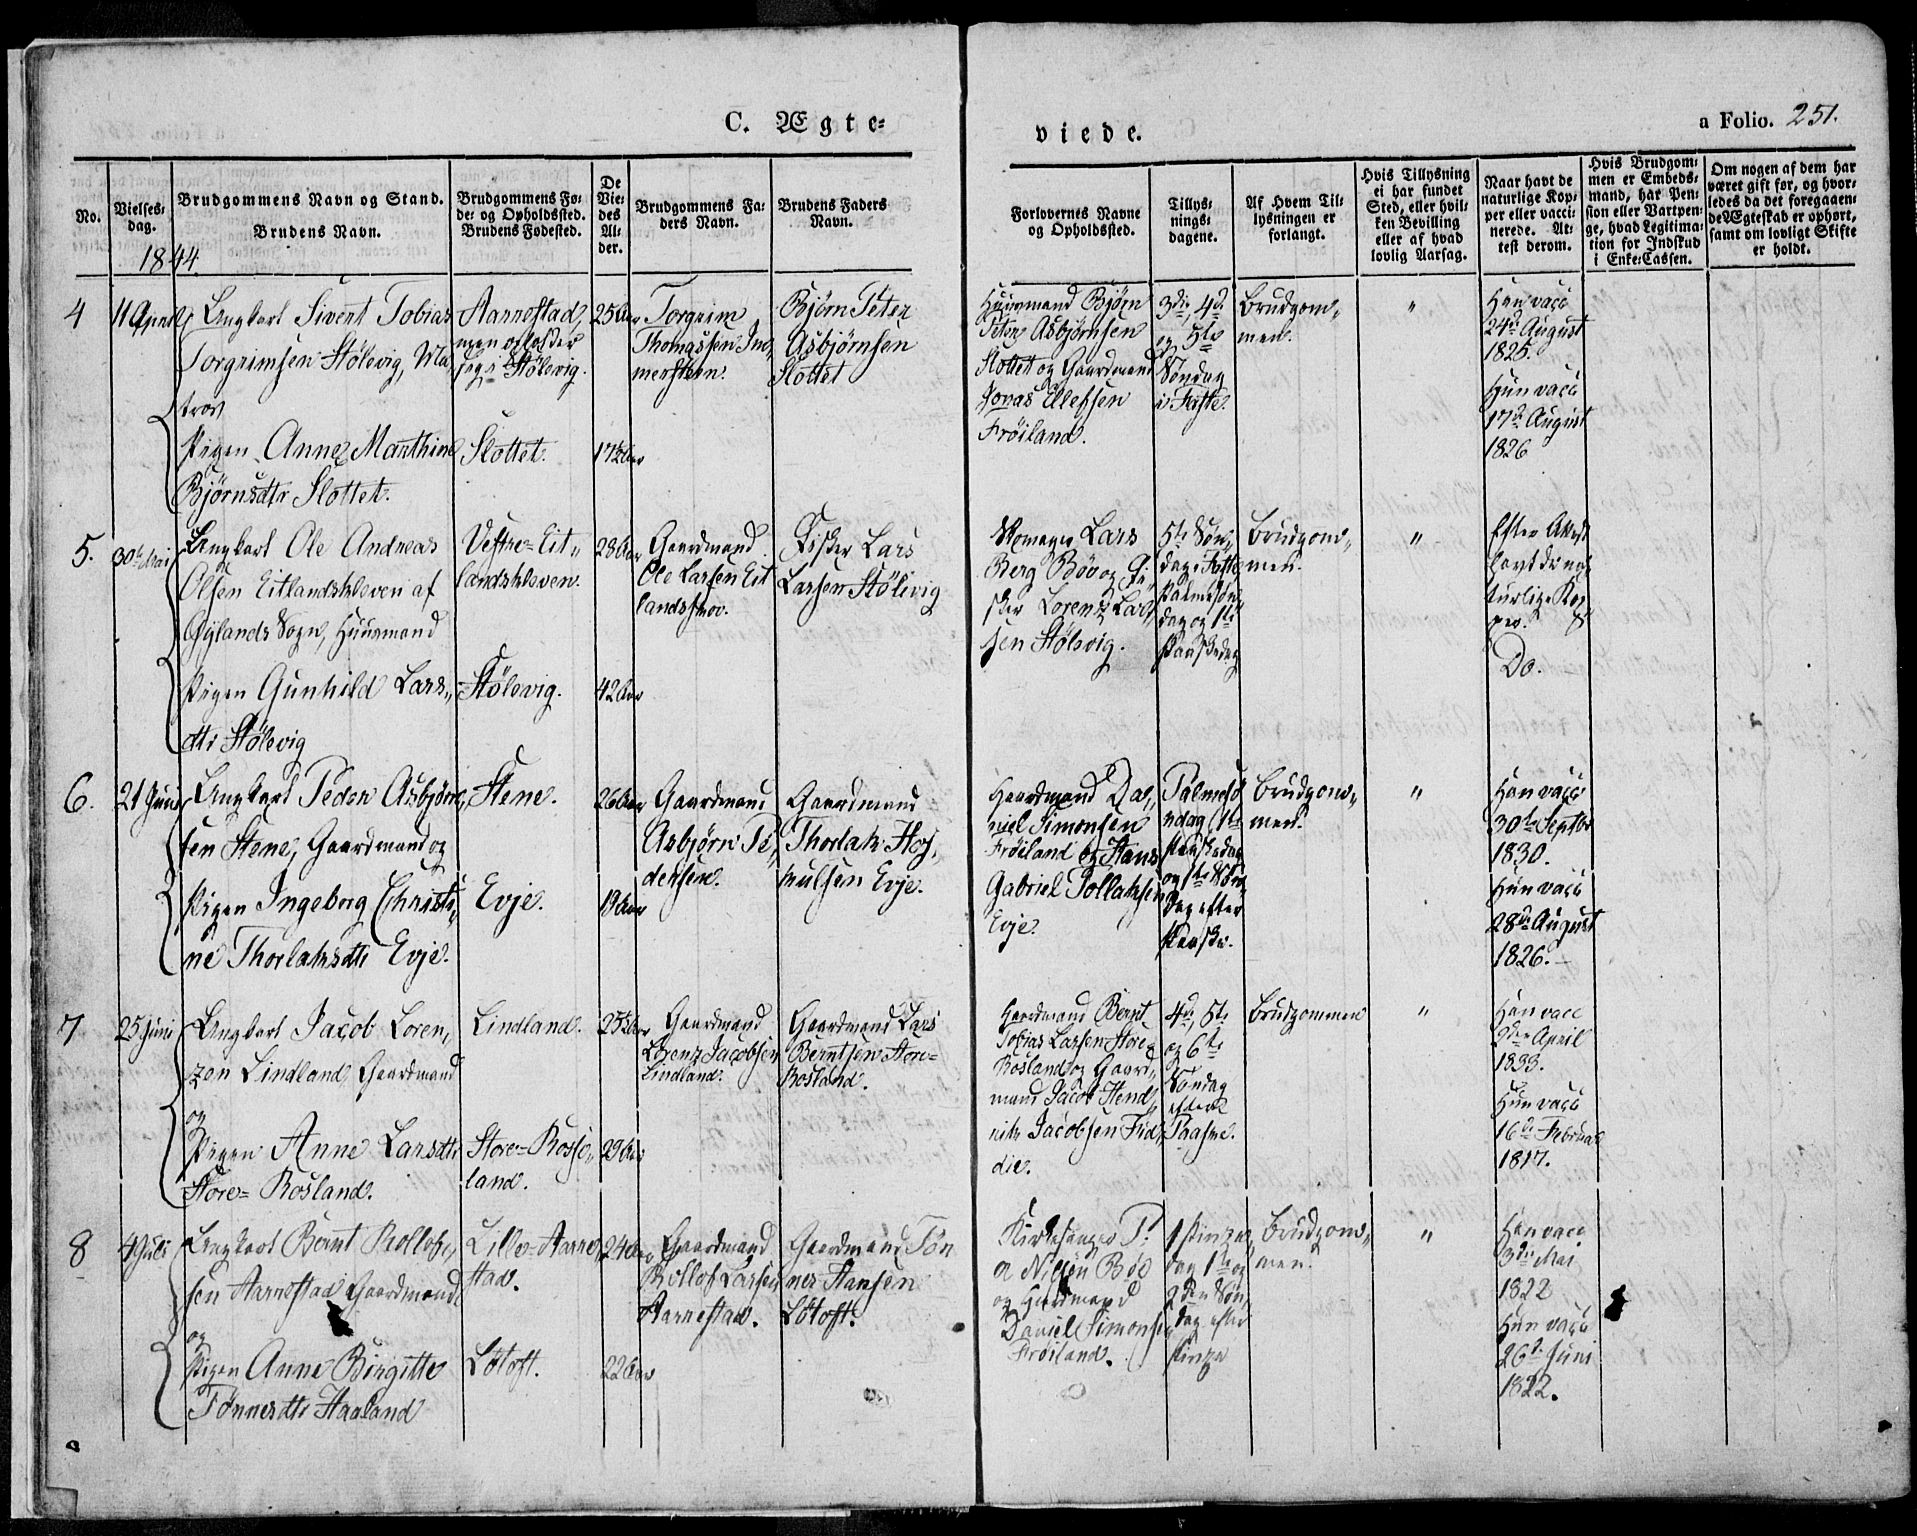 C. Ægte-
viede.
a Folio. 251.
No.
Vielses-
dag.
Brudgommens Navn og Stand.
Brudens Navn.
Brudgommens Fø-
de- og Opholdssted.
Brudens Fødested.
De
Vie-
des
Al-
der.
Brudgommens Fa-
ders Navn.
Brudens Faders
Navn.
Forlovernes Navne
og Opholdssted.
Tillys-
nings-
dagene.
Af Hvem Til-
lysningen er
forlangt.
Hvis Tillysning
ei har fundet
Sted, eller hvil-
ken Bevilling
eller af hvad
lovlig Aarsag.
Naar havt de
naturlige Kop-
per eller vacci-
nerede. At-
test derom.
Hvis Brudgom-
men er Embeds-
mand, har Pen-
sion eller Vartpen-
ge, hvad Legitima-
tion for Indskud
i Enke-Cassen.
Om nogen af dem har
været gift før, og hvor-
ledes da det foregaaen-
de Ægteskab er ophørt,
samt om lovligt Skifte
er holdt.
1844.
4
11 April
Ungkarl Sivert Tobias
Torgrimsen Stølevig, Ma
tros
Pigen Anne Marthine
Bjørnsdtr Slottet.
Aarnestad,
men opholder
sig i Stølevig.
Slottet.
25 Aar
17½ Aar
Torgrim
Thomassen Im,
mersteen.
Bjørn Peter
Asbjørnsen
Slottet
Huusmand Bjørn
Peter Asbjørnsen
Slottet og Gaardmand
Jonas Ellefsen
Frøiland.
3die, 4de
og 5te
Søndag
i Faste.
Brudgom-
men.
"
Han vacc
24de August
1825.
Hun vacc
17de August
1826
5.
30te Mai
Ungkarl Ole Andreas
Olsen Eitlandskleven af
Gylands Sogn, Huusmand
Pigen Gunhild Lars-
dtr Stølevig
Vestre-Eit-
landskleven.
Stølevig.
28 Aar
42 Aar
Gaardmand
Ole Larsen Eit
landskov.
Fisker Lars
Larsen Stølevig
Skomager Lars
Berg Bøe og Fi
sker Lorenz Lar
sen Stølevig.
5te Søn-
dag i Faste
Palmesøn
dag og 1ste
Paaskedag
Brudgom-
men.
"
Efter Attest
havt de na
turlige Kop
per.
Do.
6.
21 Juni
Ungkarl Peder Asbjørn-
sen Stene, Gaardmand og
Pigen Ingeborg Christi-
ne Thorlaksdtr Evje.
Stene.
Evje.
26 Aar
19 Aar
Gaardmand
Asbjørn Pe-
dersen.
Gaardmand
Thorlak Hos-
kulsen Evje.
Gaardmand Da-
niel Simonsen
Frøiland og Hans
Gabriel Tollaksen
Evje.
Palmesø
ndag, 1ste
Paaskedag
og 1ste Søn
dag efter
Paaske.
Brudgom-
men.
"
Han vacc
30te Septbr
1830.
Hun vacc
28de August
1826.
7
25 Juni
Ungkarl Jacob Loren-
zen Lindland, Gaardmand
og
Pigen Anne Larsdtr
Store-Rosland.
Lindland.
Store-Rosse-
land.
25½ Aar
29 Aar
Gaardmand
Lorenz Jacobsen
Lindland.
Gaardmand Lars
Berntsen Store-
Rosland.
Gaardmand Bernt
Tobias Larsen Store-
Rosland og Gaard-
mand Jacob Hend-
rik Jacobsen Fid-
die.
4de, 5te
og 6te
Søndag
efter
Paaske.
Brudgommen
"
Han vacc
9de April
1833.
Hun vacc
16de Februar
1817.
8
4 Juli
Ungkarl Bernt Rollofs-
sen Aarnestad Gaardmand
og
Pigen Anne Birgitte
Tønnesdtr Haaland
Lille-Aarne-
stad.
Løtoft.
24 Aar
22 Aar
Gaardmand
Rollof Larsen
Aarnestad.
Gaardmand Tøn
nes Hansen
Løtoft.
Kirkesanger P.
A Nilsen Bøe
og Gaardmand
Daniel Simonsen
Frøiland.
1 Pintse-
dag 1ste og
2den Søn-
dag efter
Pintse
Brudgom-
men.
"
Han vacc
3die Mai
1822
Hun vacc
26de Juni
1822.